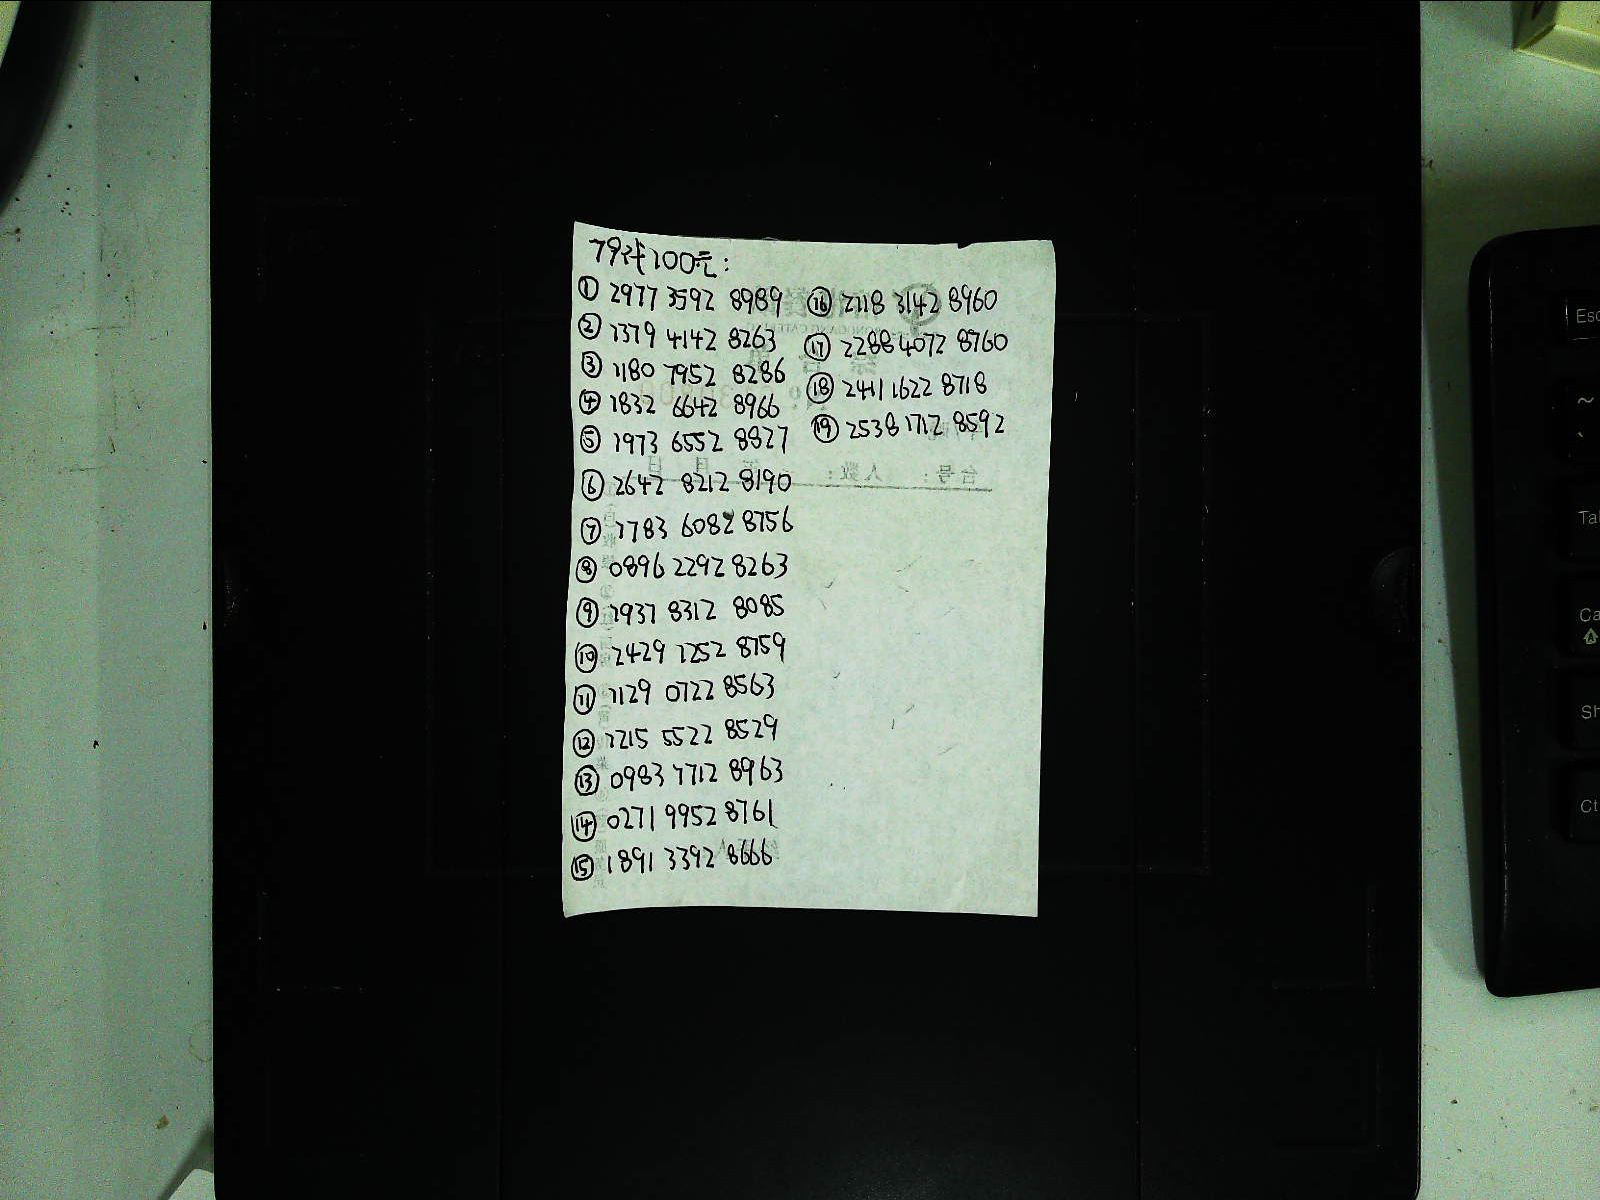 79代100元：
① 2977 3592 8989
② 1379 4142 8263
③ 1180 7952 8286
④ 1832 6642 8966
⑤ 1973 6552 8827
⑥ 2642 8212 8190
⑦ 1783 6082 8756
⑧ 0896 2292 8263
⑨ 1937 8312 8085
⑩ 2429 1252 8759
⑪ 1129 0722 8563
⑫ 1215 5522 8529
⑬ 0983 7712 8963
⑭ 0271 9952 8761
⑮ 1891 3392 8666
⑯ 2118 3142 8960
⑰ 2288 4072 8760
⑱ 2411 1622 8718
⑲ 2538 1712 8592
台号： 人数： 年 月 日
Esc
~
`
Ta
Ca
Sh
Ct